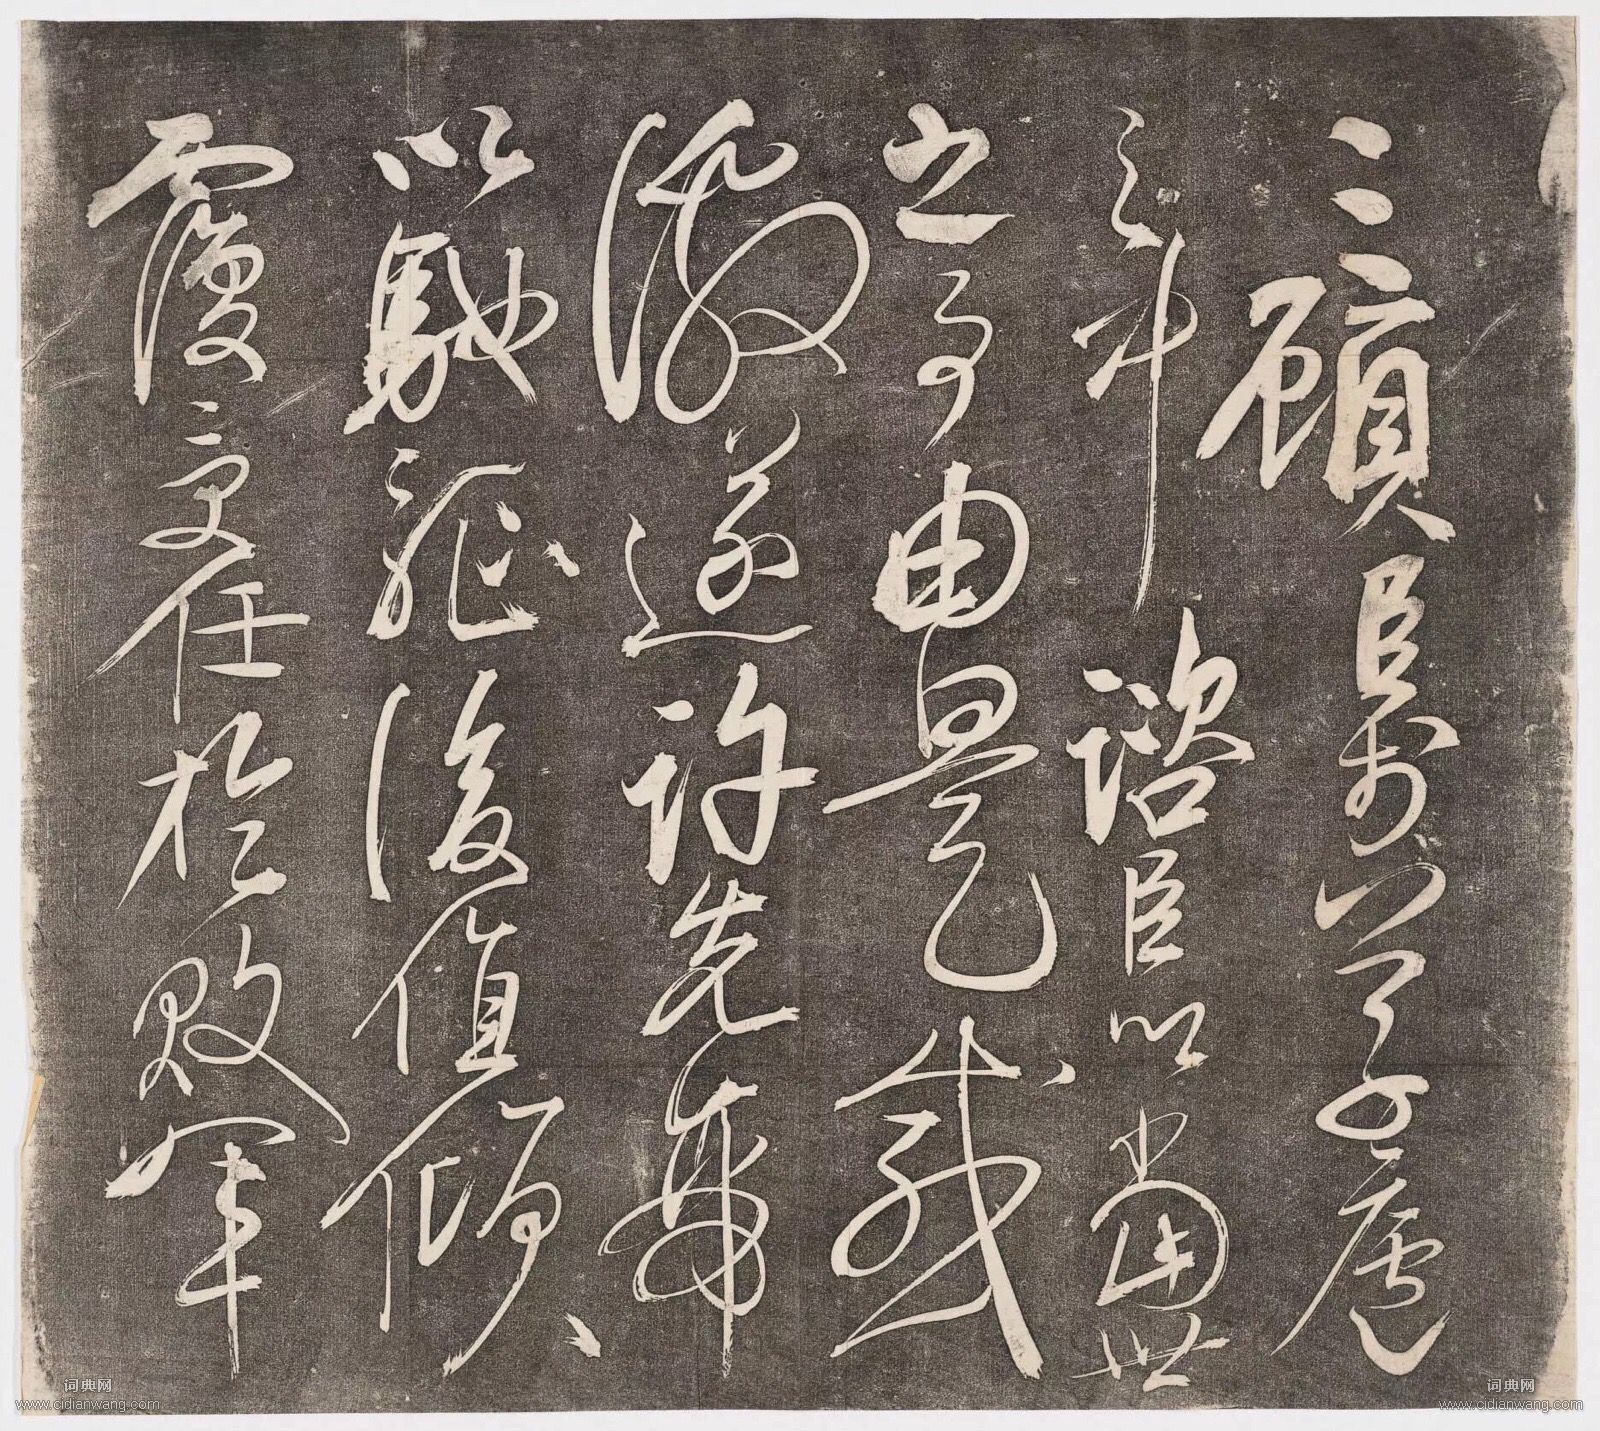 三顧臣於草廬
之中諮臣以當世
之事由是感
激遂許先帝
以馳驅後值傾
覆受任於敗軍
词典网
www.cidianwang.com
词典网
www.cidianwang.com